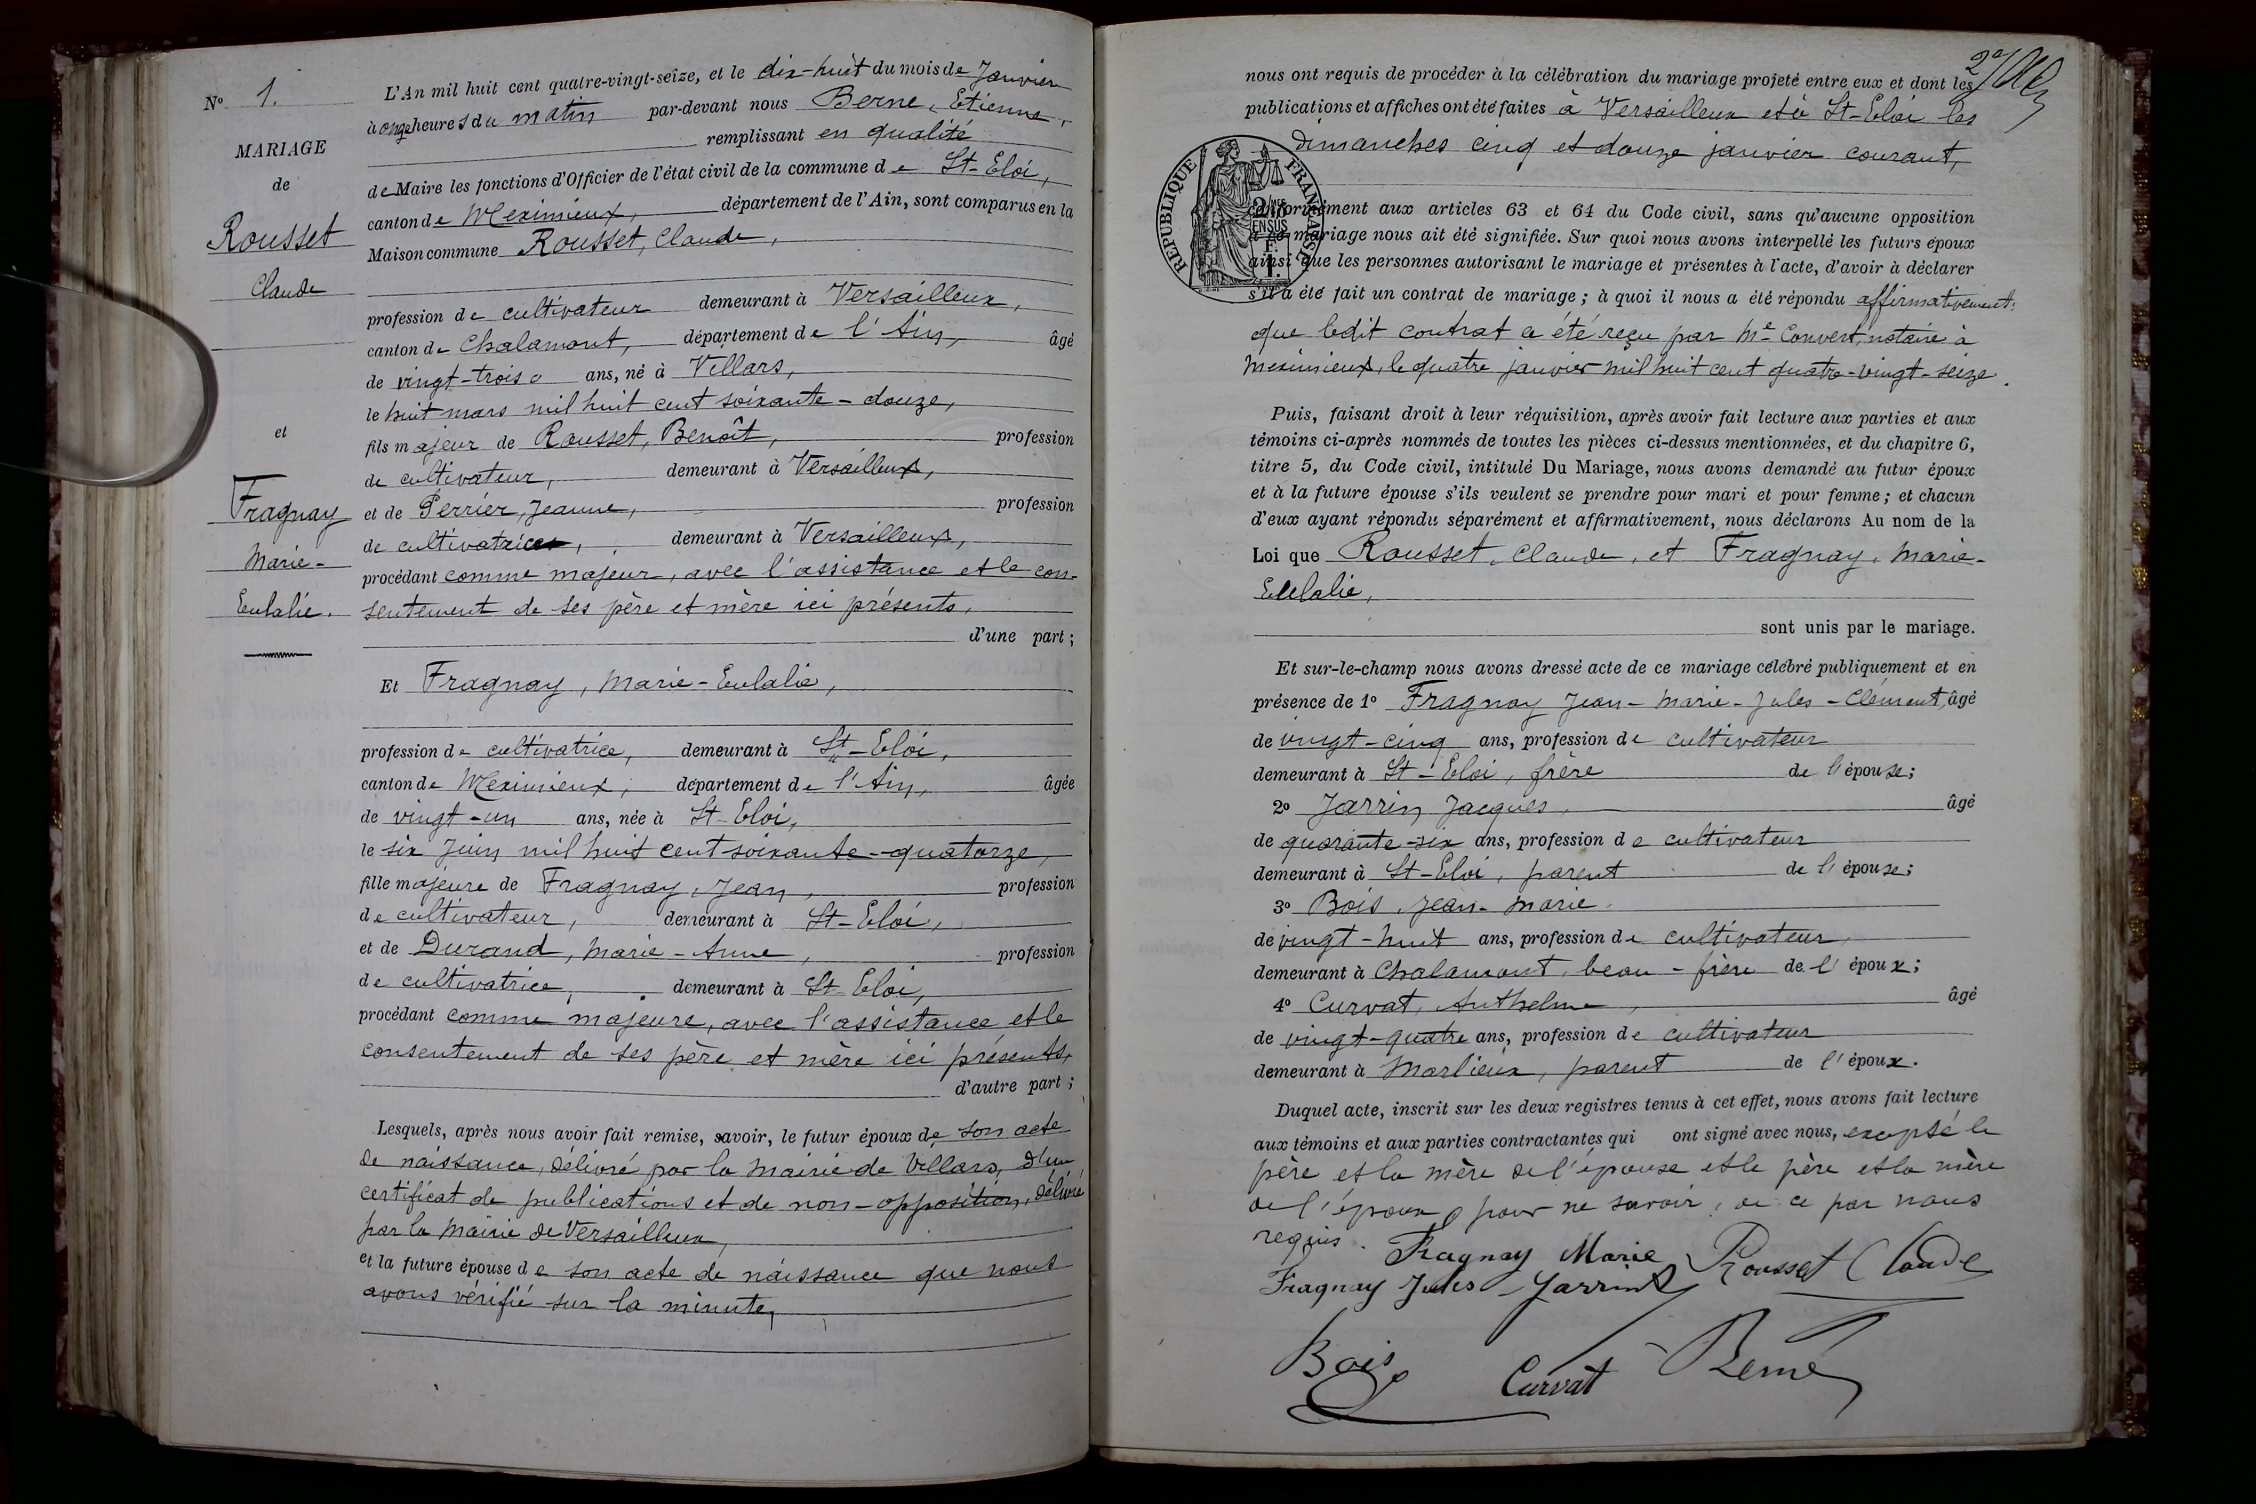 N° 1.
MARIAGE
de
Rousset
Claude
et
Fragnay
Marie-
Eulalie.
L'An mil huit cent quatre-vingt-seize, et le dix-huit du mois de Janvier
à onze heures du matin par-devant nous Berne, Etienne,
remplissant en qualité
de Maire les fonctions d'Officier de l'état civil de la commune de St-Eloi,
canton de Meximieux, département de l'Ain, sont comparus en la
Maison commune Rousset, Claude,
profession de cultivateur demeurant à Versailleux,
canton de Chalamont, département de l'Ain, âgé
de vingt-trois ans, né à Villars,
le huit mars mil huit cent soixante-douze,
fils majeur de Rousset, Benoît, profession
de cultivateur, demeurant à Versailleux,
et de Perrier, Jeanne, profession
de cultivatrice, demeurant à Versailleux,
procédant comme majeur, avec l'assistance et le con-
sentement de ses père et mère ici présents,
d'une part;
Et Fragnay, Marie-Eulalie,
profession de cultivatrice, demeurant à St-Eloi,
canton de Meximieux, département de l'Ain, âgée
de vingt-un ans, née à St-Eloi,
le six Juin mil huit cent soixante-quatorze,
fille majeure de Fragnay, Jean, profession
de cultivateur, demeurant à St-Eloi,
et de Durand, Marie-Anne, profession
de cultivatrice, demeurant à St Eloi,
procédant comme majeure, avec l'assistance et le
consentement de ses père et mère ici présents,
d'autre part;
Lesquels, après nous avoir fait remise, savoir, le futur époux de son acte
de naissance, délivré par la Mairie de Villars, d'un
certificat de publications et de non-opposition, délivré
par la Mairie de Versailleux,
et la future épouse de son acte de naissance que nous
avons vérifié sur la minute,
nous ont requis de procéder à la célébration du mariage projeté entre eux et dont les
publications et affiches ont été faites à Versailleux et à St-Eloi les
dimanches cinq et douze janvier courant,
REPUBLIQUE FRANÇAISE
conformément aux articles 63 et 64 du Code civil, sans qu'aucune opposition
à ce mariage nous ait été signifiée. Sur quoi nous avons interpellé les futurs époux
ainsi que les personnes autorisant le mariage et présentes à l'acte, d'avoir à déclarer
s'il a été fait un contrat de mariage; à quoi il nous a été répondu affirmativement:
que ledit contrat a été reçu par Me Convert, notaire à
Meximieux, le quatre janvier mil huit cent quatre-vingt-seize.
Puis, faisant droit à leur réquisition, après avoir fait lecture aux parties et aux
témoins ci-après nommés de toutes les pièces ci-dessus mentionnées, et du chapitre 6,
titre 5, du Code civil, intitulé Du Mariage, nous avons demandé au futur époux
et à la future épouse s'ils veulent se prendre pour mari et pour femme; et chacun
d'eux ayant répondu séparément et affirmativement, nous déclarons Au nom de la
Loi que Rousset, Claude, et Fragnay, Marie-
Eulalie,
sont unis par le mariage.
Et sur-le-champ nous avons dressé acte de ce mariage célébré publiquement et en
présence de 1° Fragnay Jean-Marie-Jules-Clément, âgé
de vingt-cinq ans, profession de cultivateur
demeurant à St-Eloi, frère de l'épouse;
2° Jarrin Jacques, âgé
de quarante-six ans, profession de cultivateur
demeurant à St-Eloi, parent de l'épouse;
3° Bois, Jean-Marie.
de vingt-huit ans, profession de cultivateur,
demeurant à Chalamont, beau-frère de l'époux;
4° Curvat, Anthelme, âgé
de vingt-quatre ans, profession de cultivateur
demeurant à Marlieux, parent de l'époux.
Duquel acte, inscrit sur les deux registres tenus à cet effet, nous avons fait lecture
aux témoins et aux parties contractantes qui ont signé avec nous, excepté le
père et la mère de l'épouse et le père et la mère
de l'époux pour ne savoir, de ce par nous
requis.
Fragnay Marie Rousset Claude
Fragnay Jules Jarrin
Bois Curvat Berne